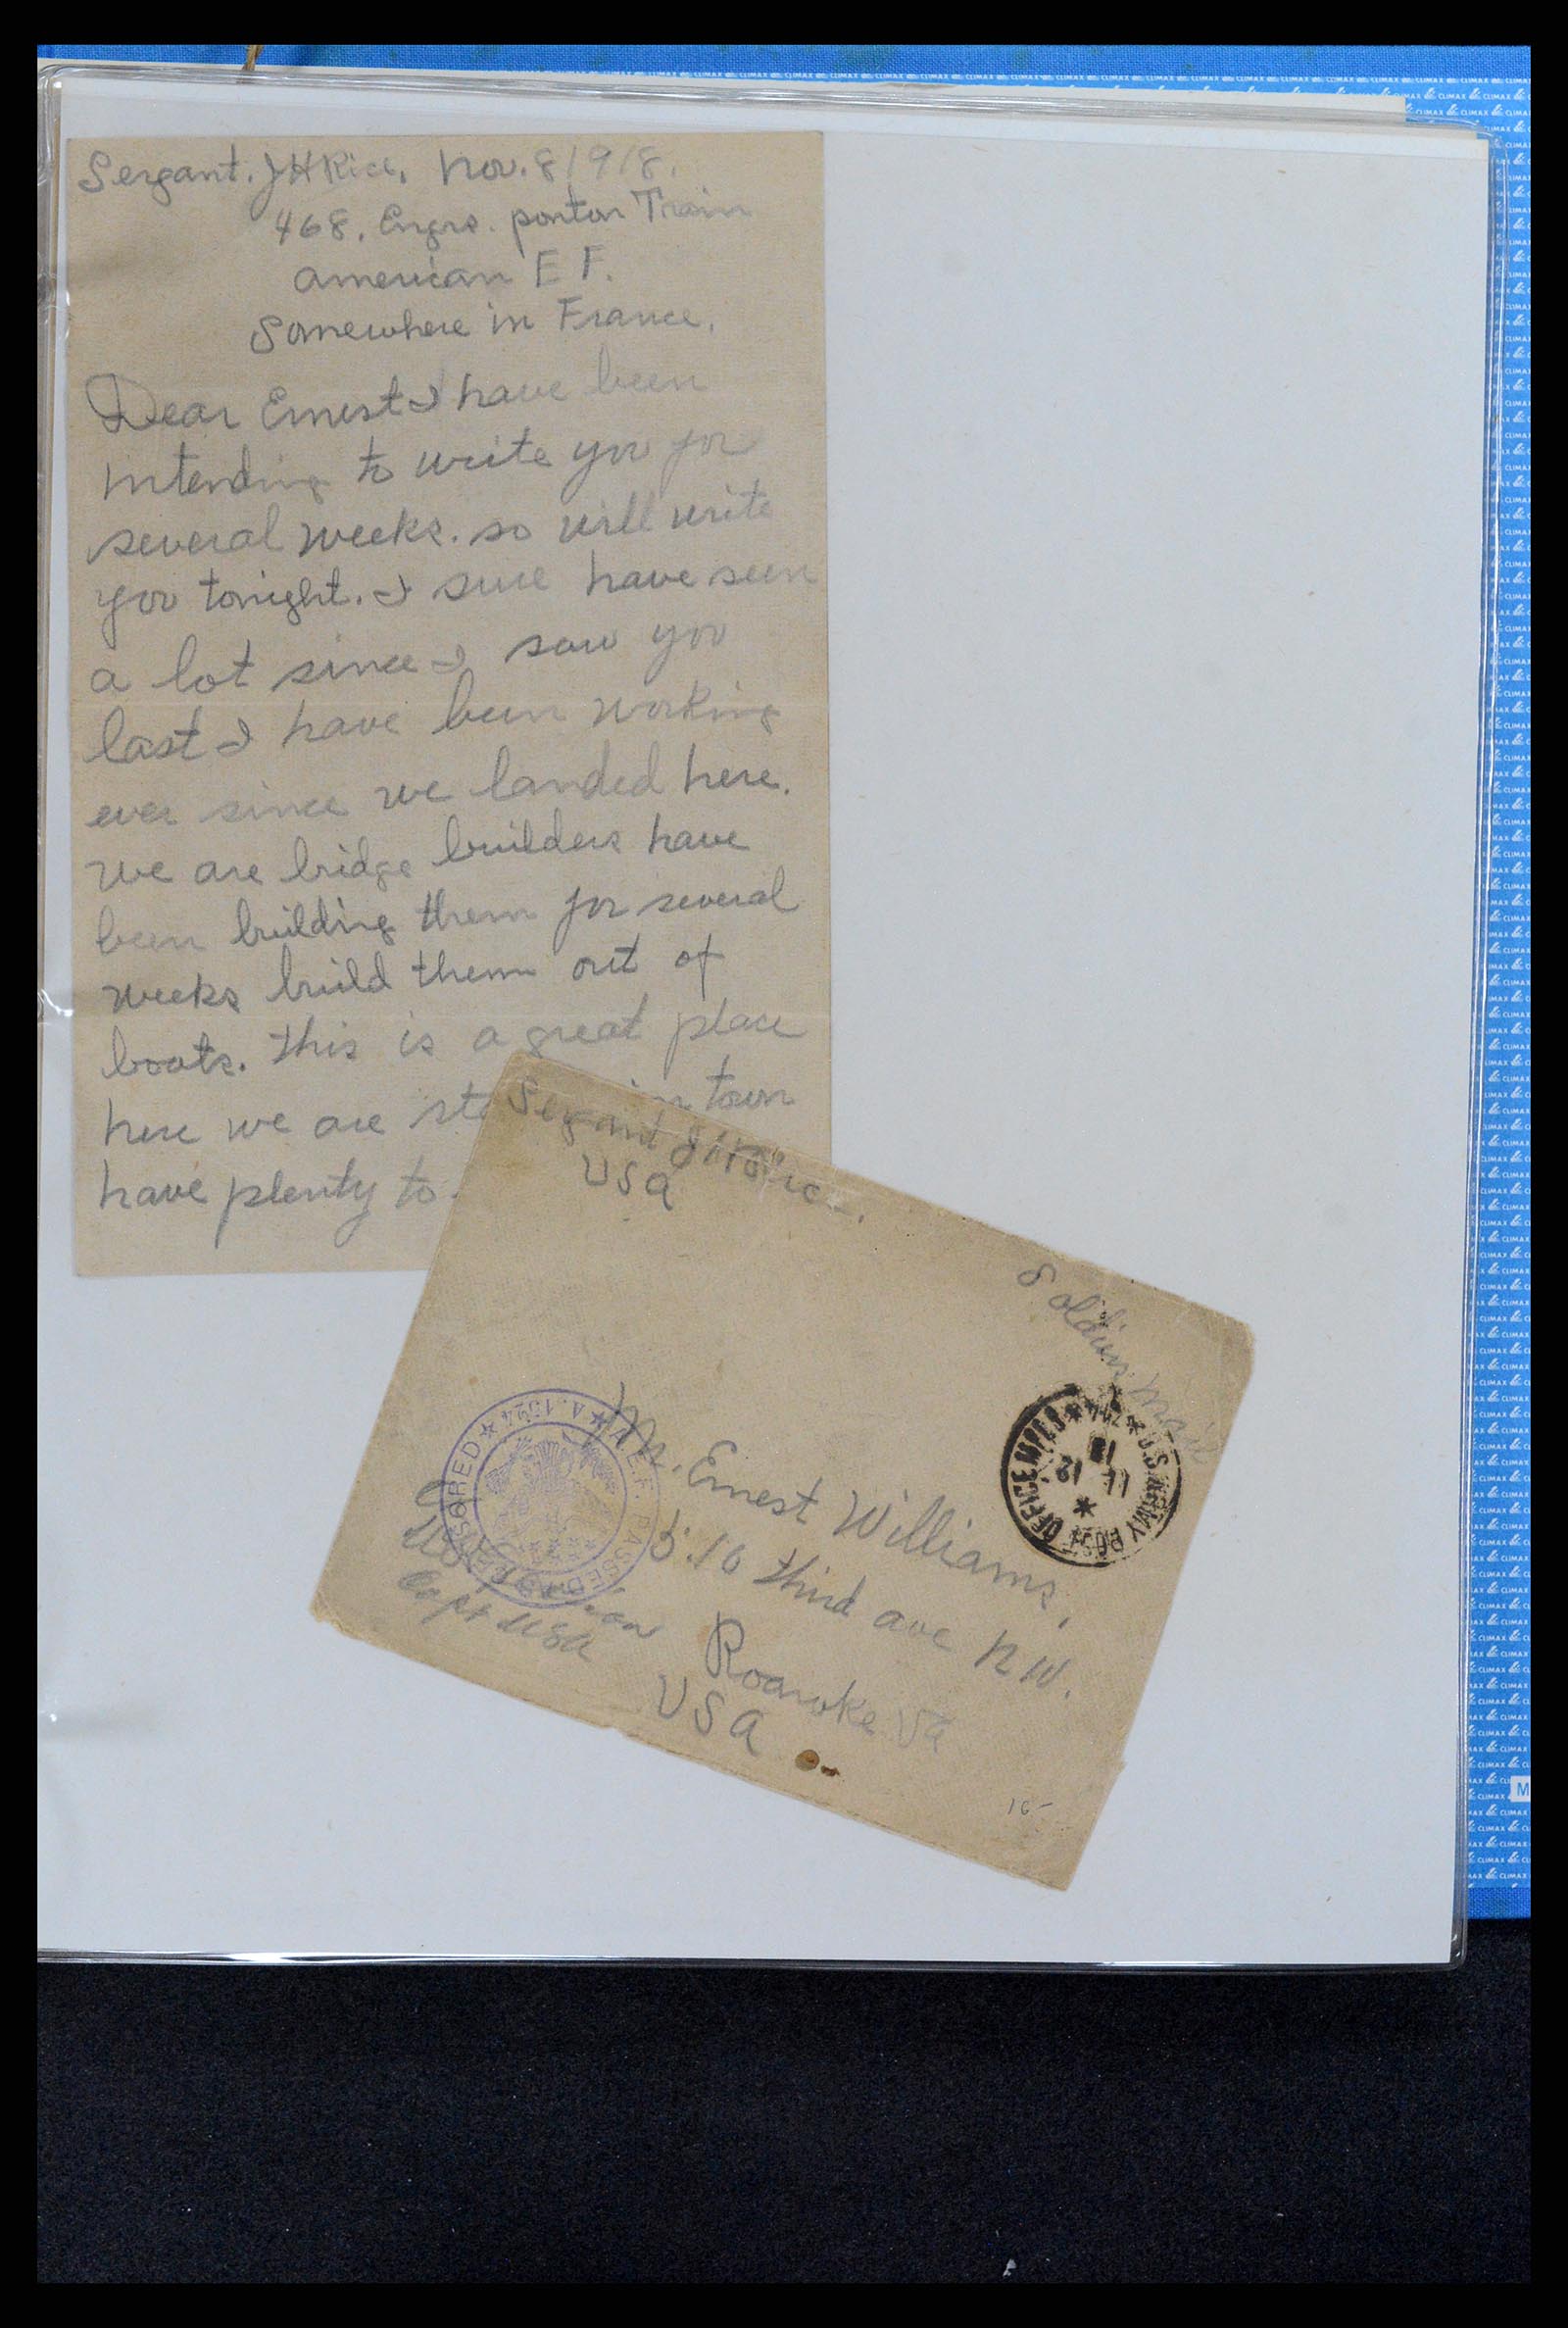 Sergant. J H Rice, Nov. 8 1918.
468. Engrs. ponton Train
American E F.
Somewhere in France.
Dear Ernest I have been
intending to write you for
several weeks. so will write
you tonight. I sure have seen
a lot since I saw you
last I have been working
ever since we landed here.
we are bridge builders have
been building them for several
weeks build them out of
boats. this is a great place
here we are town
have plenty to
Sergant J H Rice.
USA
Soldiers Mail
U.S. ARMY POST OFFICE M.P.E.S.
Mr. Ernest Williams,
510 third ave N W.
Roanoke Va
USA
A.E.F. PASSED AS CENSORED
Capt USA
16-
CLIMAX
M